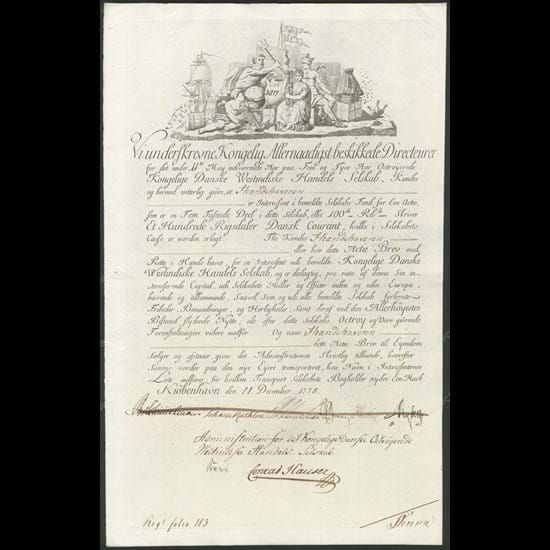 3017
Vi underskrevne Kongelig Allernaadigst beskikkede Directeurer
for det under 11te May indeværende Aar paa Fem og Tyve Aar Octroyerede
Kongelige Danske Westindiske Handels Selskab, Kiendes
og hermed vitterlig giøre, at Ihændehaveren
er Interessent i bemeldte Selskabs Fond for Een Actie,
som er en Fem Tusende Deel i dette Selskab, eller 100de Rdlr. Skriver
Et Hundrede Rigsdaler Dansk Courant, hvilke i Selskabets
Casse er vorden erlagt. Thi Kiendes Ihændehaveren
eller hvo dette Actie Brev med
Rette i Hænde haver, for en Interessent udi bemeldte Kongelige Danske
Westindiske Handels Selskab, og er deelagtig, pro rata af denne Sin in-
teresserende Capital, udi Selskabets Midler og Effecter inden og uden Europa
havende og tilkommende, Saavel Som og udi alle bemeldte Selskab forleente
Friheder, Benaadninger, og Herligheder, Samt deraf ved den Allerhøyestes
Bistand flydende Nytte, alt efter dette Selskabs Octroy og Dets giørende
Foranstaltninger videre medfør. Og naar Ihændehaveren
dette Actie Brev til Eyendom
Sælger og afstaaer, gives det Administrationen Skriftlig tilkiende, hvorefter
Samme vorder paa den nye Eyere transporteret, hans Navn i Interessenternes
Liste indført, for hvilken Transport Selskabets Bogholder nyder Een Mark
Kiöbenhavn den 11 December 1778.
Administration for det Kongelige Danske Octroyerede
Westindiske Handels Selskab.
Conrad Hauser
Regt. folio 113